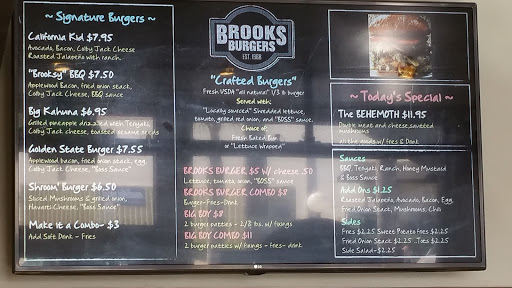 ~ Signature Burgers ~
California Kid $7.95
Avocado, Bacon, Colby Jack Cheese
Roasted Jalapeño with ranch.
"Brooksy" BBQ $7.50
Applewood Bacon, fried onion stack,
Colby Jack Cheese, BBQ sauce
Big Kahuna $6.95
Grilled pineapple drizzled with Teriyaki,
Colby Jack cheese, toasted sesame seeds
Golden State Burger $7.55
Applewood bacon, fried onion stack, egg,
Colby Jack Cheese, "Boss Sauce"
Shroom' Burger $6.50
Sliced Mushrooms & grilled onion,
Havarti Cheese, "Boss Sauce"
Make it a Combo- $3
Add Soft Drink - Fries
BROOKS
BURGERS
EST. 1968
"Crafted Burgers"
Fresh USDA "all natural" 1/3 lb burger
Served with:
"Locally sourced" Shredded lettuce,
tomato, grilled red onion, and "BOSS" sauce.
Choice of:
Fresh Baked Bun
or "Lettuce Wrapped"
BROOKS BURGER $5 w/ cheese .50
Lettuce, tomato, onion, "BOSS" sauce
BROOKS BURGER COMBO $8
Burger-Fries-Drink
BIG BOY $8
2 burger patties - 2/3 lbs. w/ fixings
BIG BOY COMBO $11
2 burger patties w/ fixings - fries- drink
~ Today's Special ~
The BEHEMOTH $11.95
Double meat and cheese, sauteed
mushrooms
w/ fries & Drink
Sauces
BBQ, Teriyaki, Ranch, Honey Mustard
& Boss Sauce
Add Ons $1.25
Roasted Jalapeño, Avocado, Bacon, Egg,
Fried Onion Stack, Mushrooms, Chili
Sides
Fries $2.25 Sweet Potato Fries $2.25
Fried Onion Stack $2.25 ..Tots $2.25
Side Salad-$2.25
LG